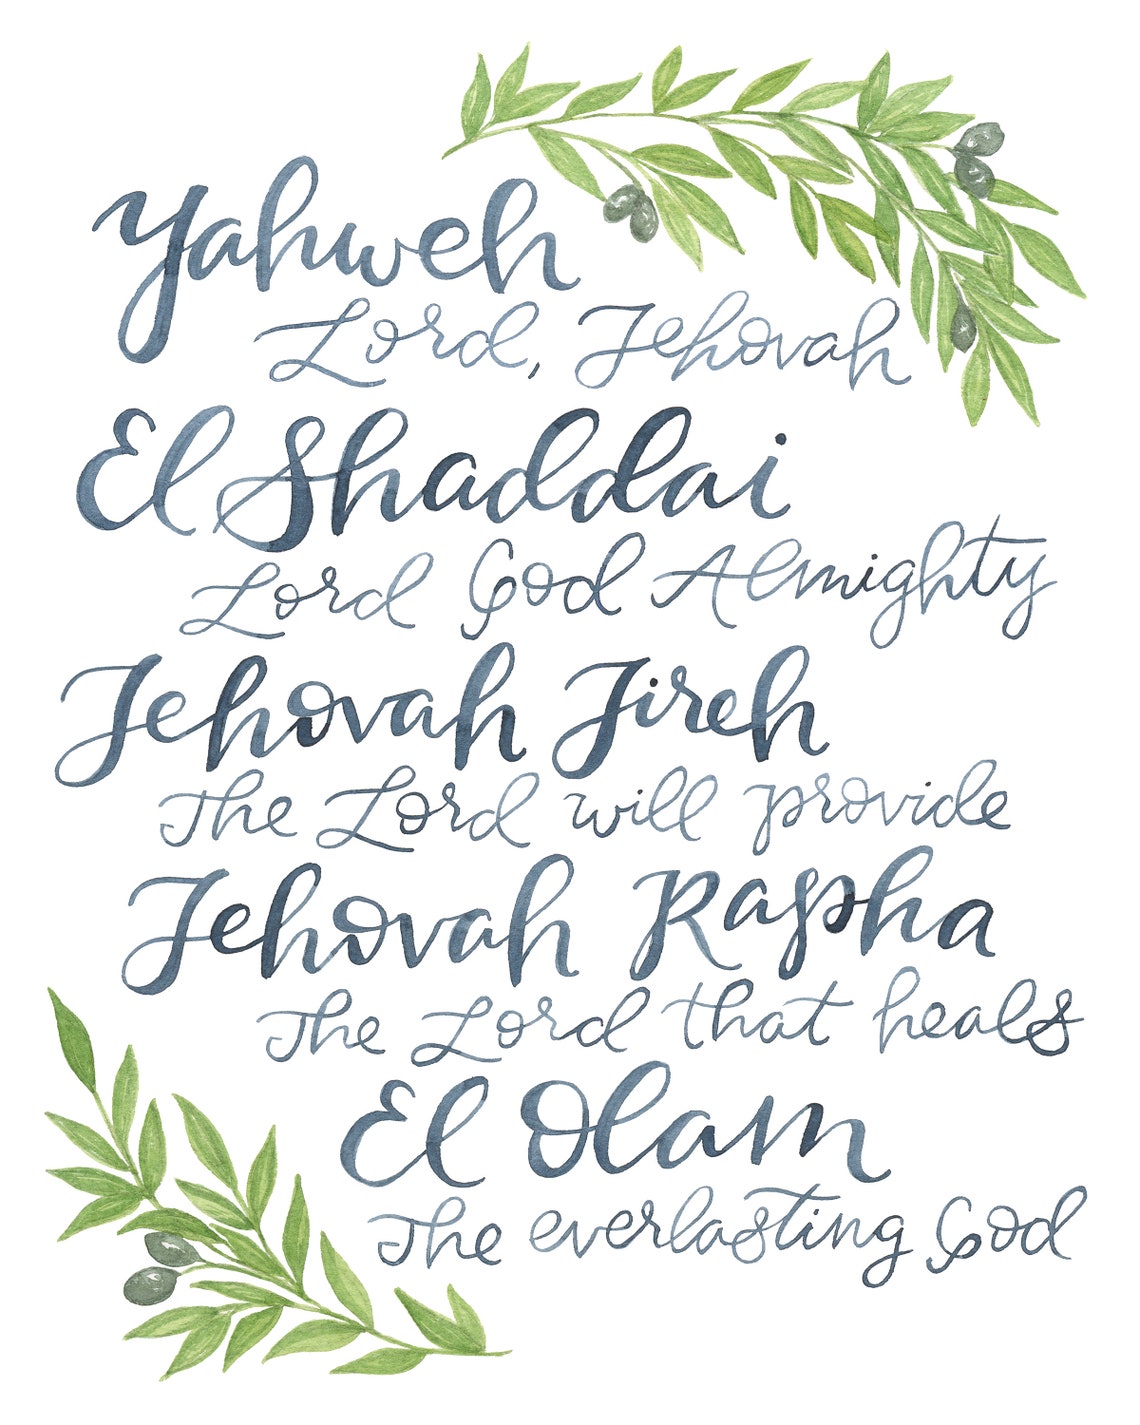 Yahweh
Lord, Jehovah
El Shaddai
Lord God Almighty
Jehovah Jireh
The Lord will provide
Jehovah Rapha
The Lord that heals
El Olam
The everlasting God